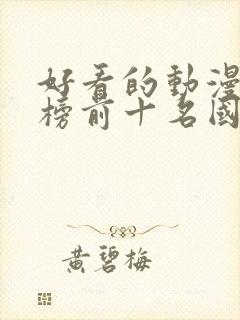 好看的動漫
榜前十名國
黃碧梅